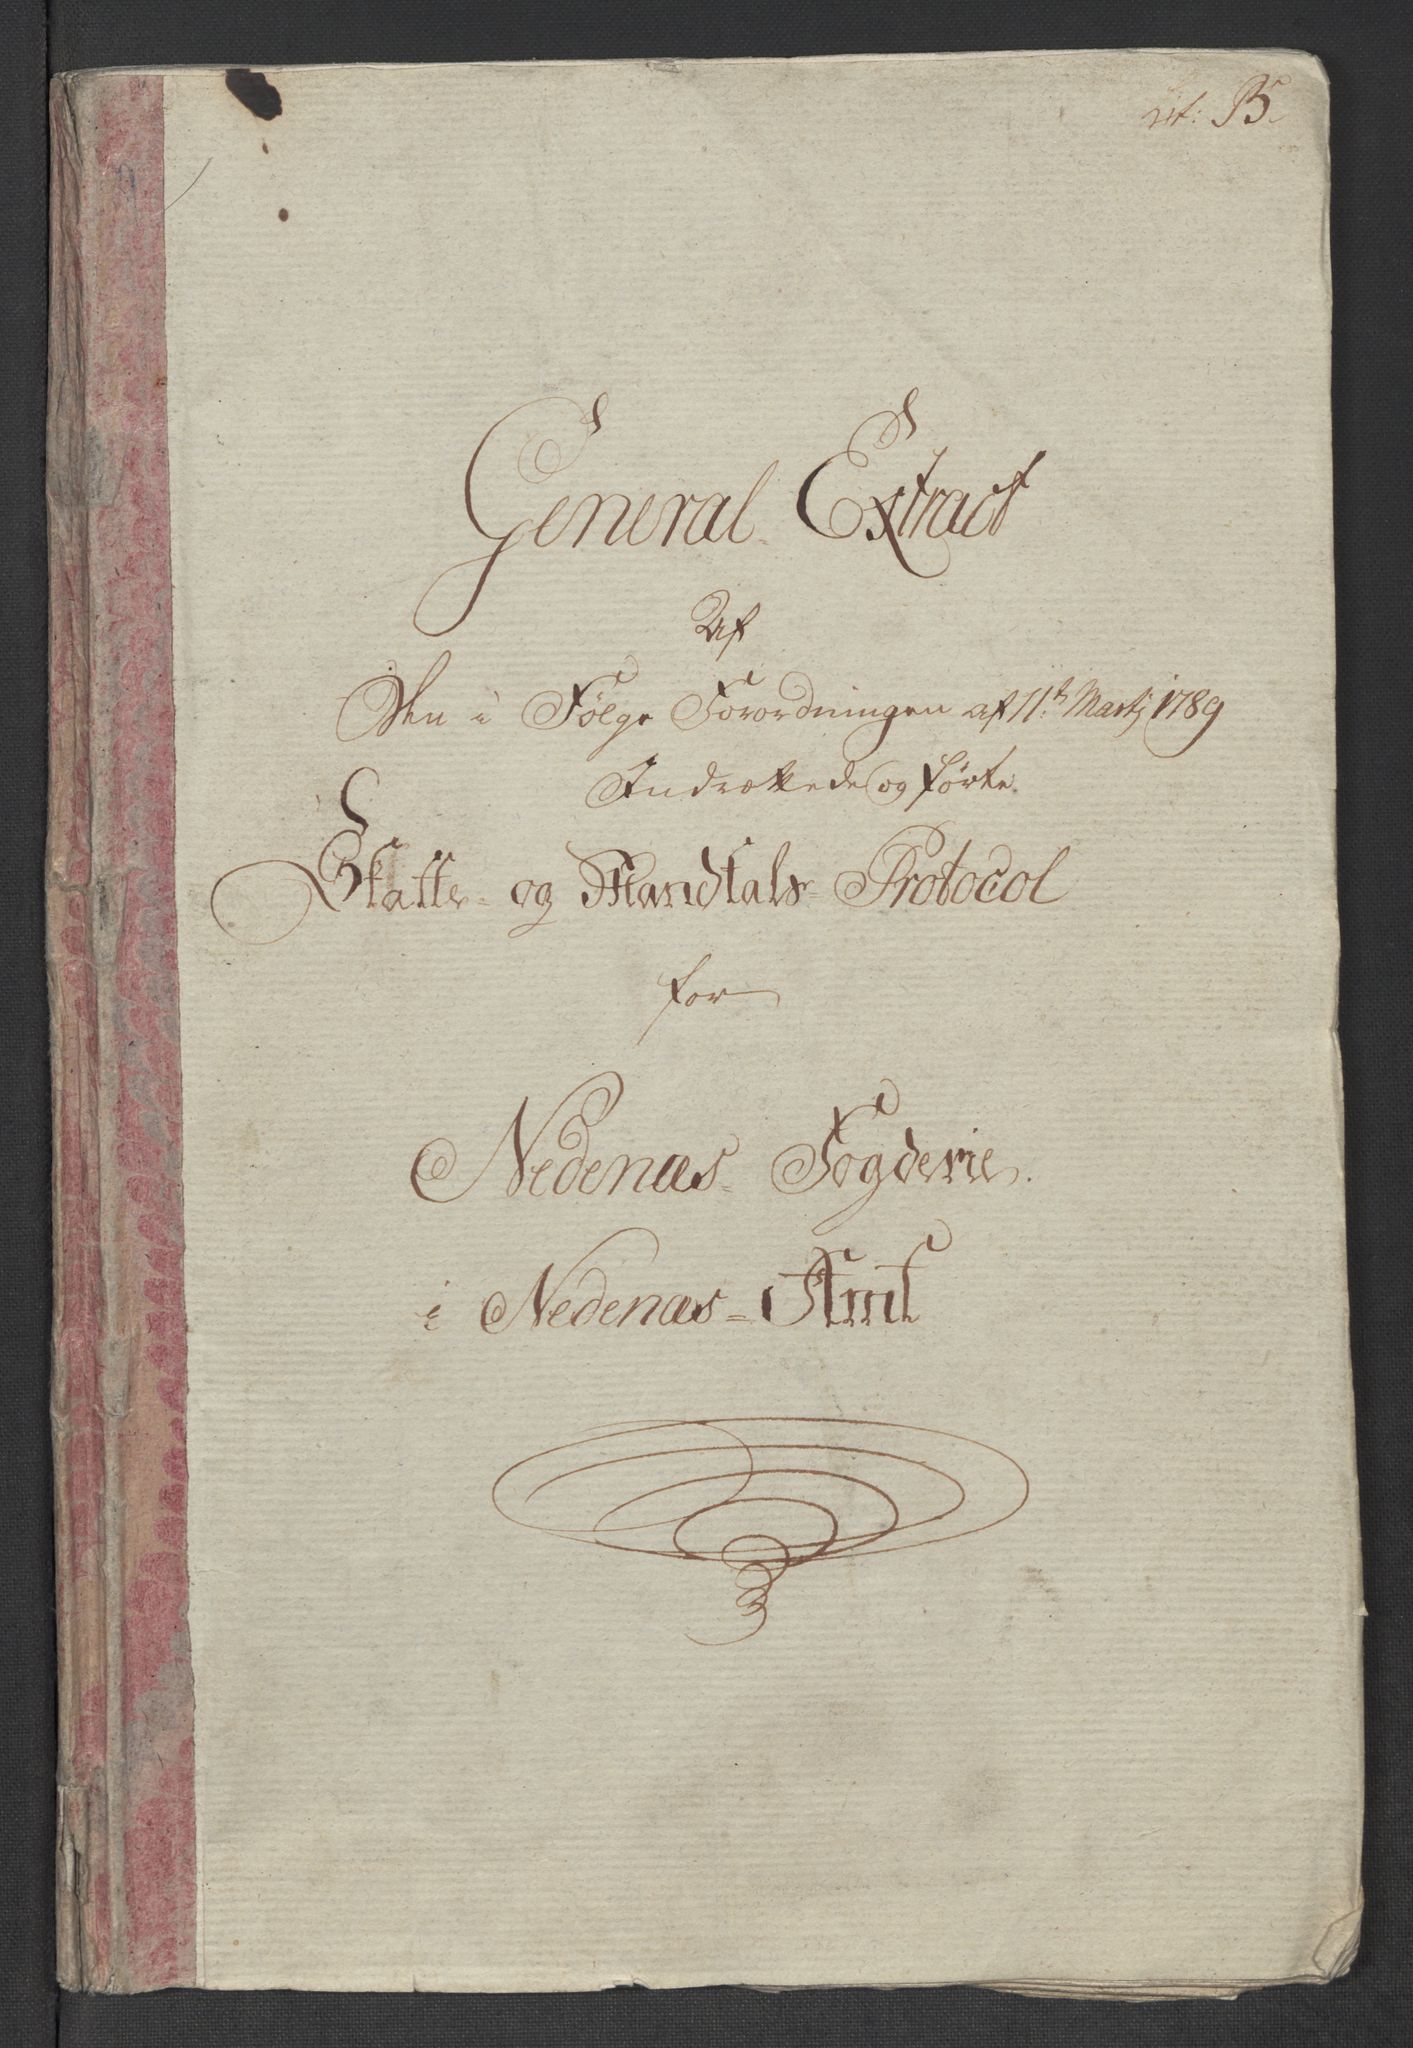 Lit: B.
General Extract
Af
Den i Følge Forordningen af 11.te Martj 1789
Indrættede og førte
Skatte- og Mandtals- Protocol
for
Nedenæs- Fogderie.
i Nedenæs- Amt